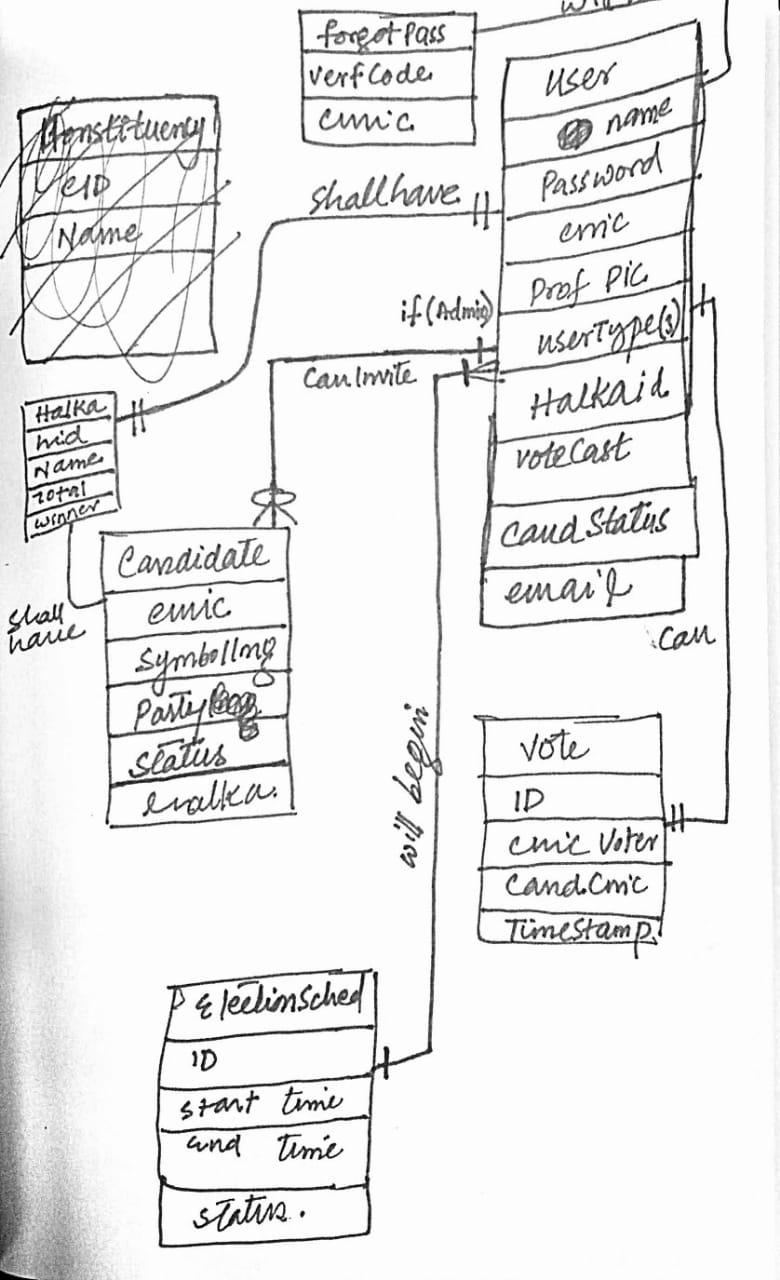 forgotPass
verfCode
cnic
user
name
Password
cnic
Prof Pic
userType(s)
Halkaid
voteCast
CandStatus
email
Constituency
CID
Name
shall have
if (Admin)
Can Invite
Halka
hid
Name
total
winner
shall
have
Candidate
cnic
SymbolImg
Party
Status
can
will begin
Vote
ID
cnic Voter
Cand.Cnic
TimeStamp.
ElectionSched
ID
start time
end time
status.